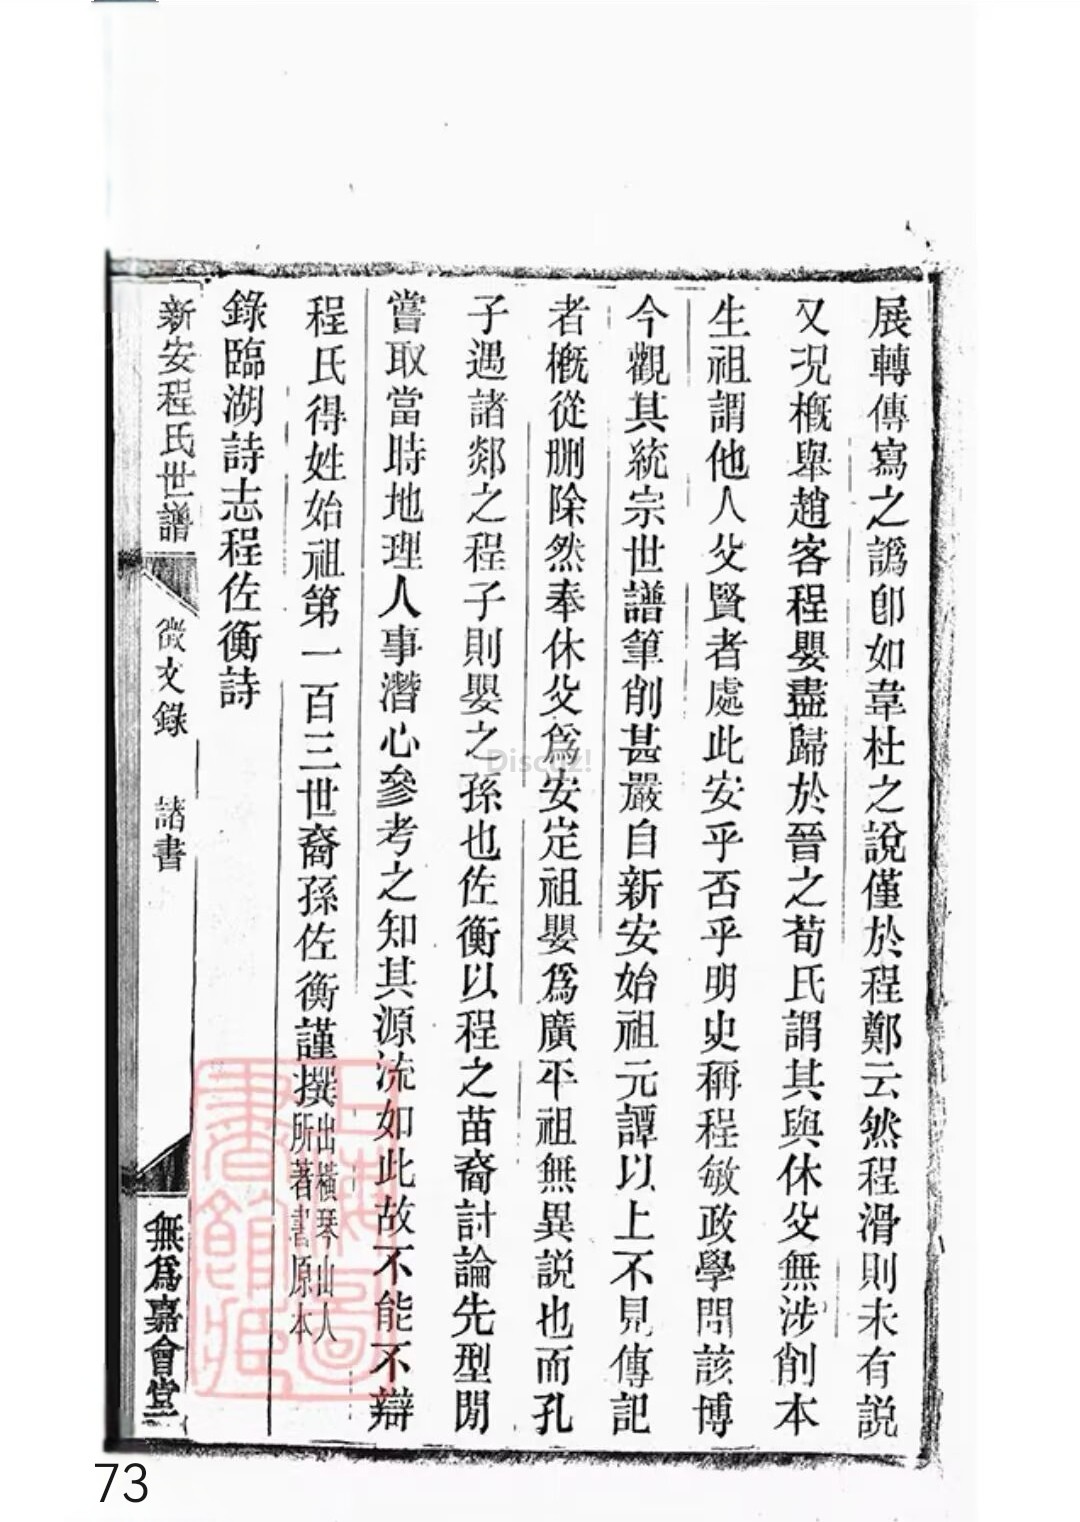 展轉傳寫之譌卽如韋杜之說僅於程鄭云然程滑則未有説
又况槪舉趙客程嬰盡歸於晉之荀氏謂其與休父無涉削本
生祖謂他人父賢者處此安乎否乎明史稱程敏政學問該博
今觀其統宗世譜筆削甚嚴自新安始祖元譚以上不見傳記
者槪從刪除然奉休父爲安定祖嬰爲廣平祖無異説也而孔
子遇諸郯之程子則嬰之孫也佐衡以程之苗裔討論先型閒
嘗取當時地理人事潛心參考之知其源流如此故不能不辯
程氏得姓始祖第一百三世裔孫佐衡謹撰出橫琴山人所著書原本
錄臨湖詩志程佐衡詩
新安程氏世譜 徵文錄 諸書 無爲嘉會堂
上海圖書館藏
Discuz!
73